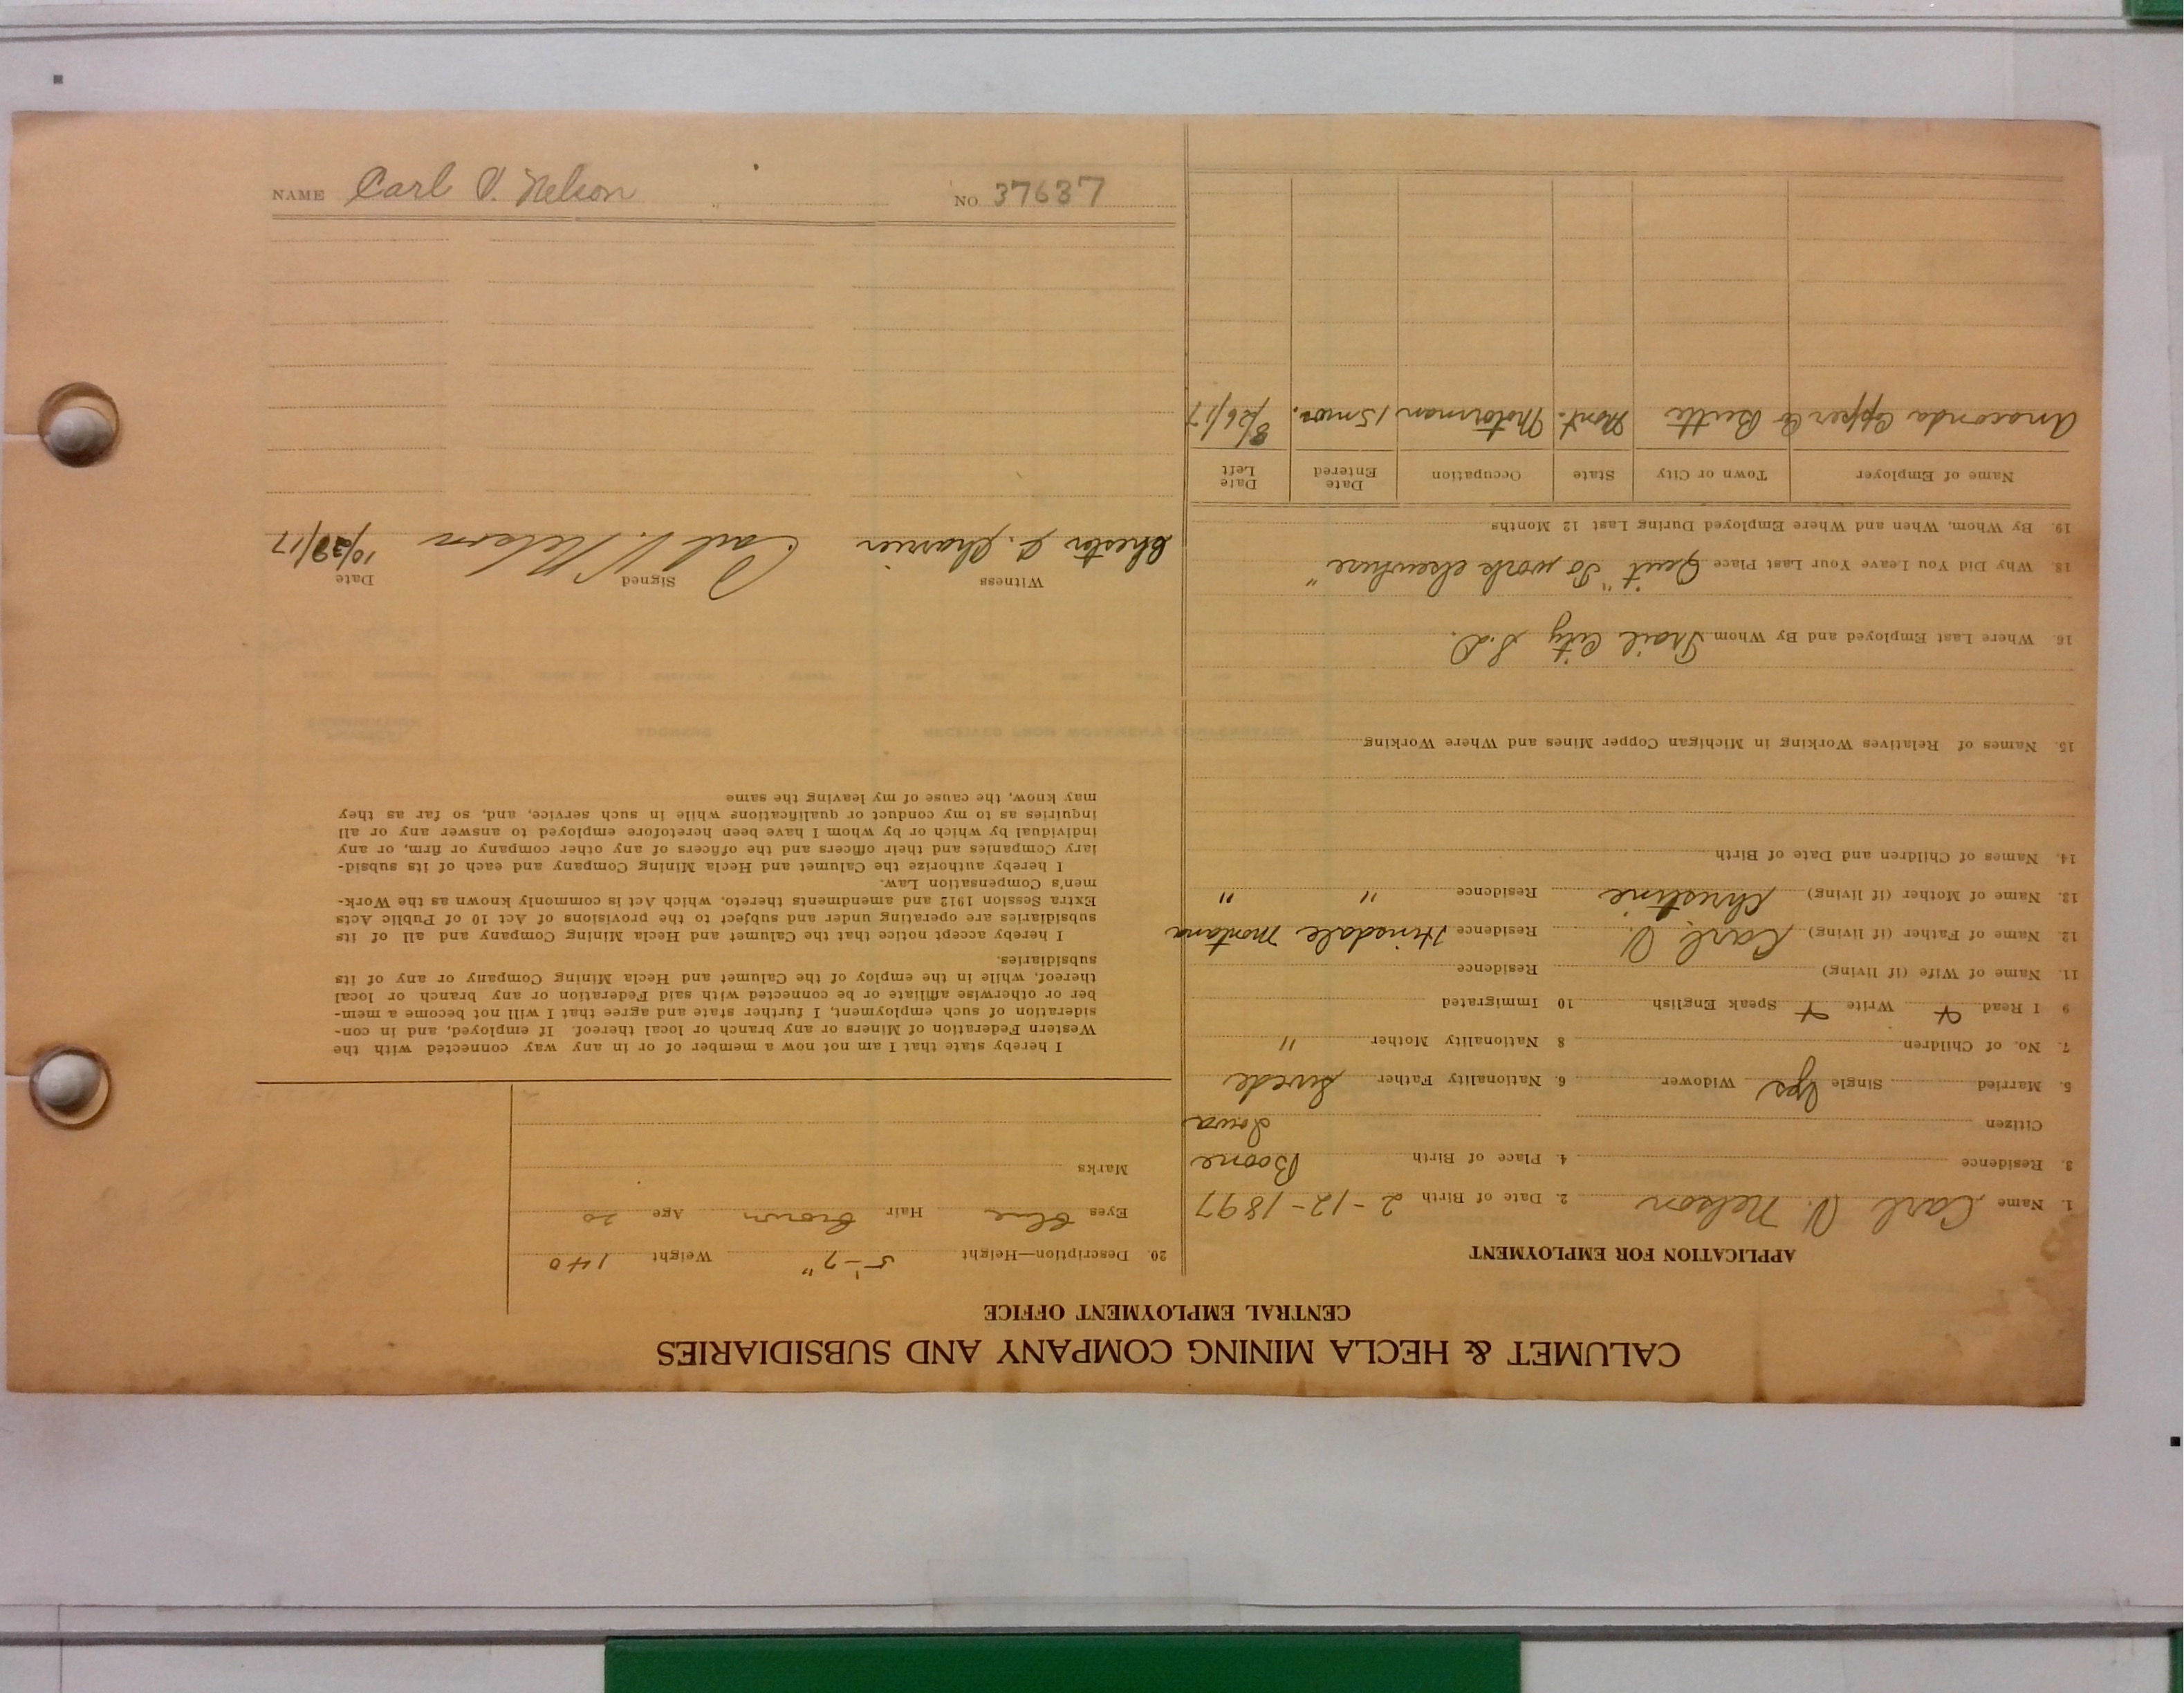 NAME Carl V. Nelson NO 37637
CALUMET & HECLA MINING COMPANY AND SUBSIDIARIES
CENTRAL EMPLOYMENT OFFICE
APPLICATION FOR EMPLOYMENT
1. Name Carl V. Nelson 2. Date of Birth 2-12-1897
3. Residence 4. Place of Birth Boone
Citizen Iowa
5. Married Single Yes Widower 6. Nationality Father Swede
7. No. of Children 8 Nationality Mother "
9 I Read Write Speak English 10 Immigrated
11. Name of Wife (if living) Residence
12. Name of Father (if living) Carl V. Residence Hinsdale Montana
13. Name of Mother (if living) Christine Residence " "
14. Names of Children and Date of Birth
15. Names of Relatives Working in Michigan Copper Mines and Where Working
16. Where Last Employed and By Whom Trail City S.D.
18. Why Did You Leave Your Last Place Quit "To work elsewhere"
19. By Whom, When and Where Employed During Last 12 Months
Name of Employer Town or City State Occupation Date Entered Date Left
Anaconda Copper Co Butte Mont. Motorman 15 mos. 8/26/17
20. Description—Height 5'-7" Weight 140
Eyes Blue Hair Brown Age 20
Marks
I hereby state that I am not now a member of or in any way connected with the
Western Federation of Miners or any branch or local thereof. If employed, and in con-
sideration of such employment, I further state and agree that I will not become a mem-
ber or otherwise affiliate or be connected with said Federation or any branch or local
thereof, while in the employ of the Calumet and Hecla Mining Company or any of its
subsidiaries.
I hereby accept notice that the Calumet and Hecla Mining Company and all of its
subsidiaries are operating under and subject to the provisions of Act 10 of Public Acts
Extra Session 1912 and amendments thereto, which Act is commonly known as the Work-
men's Compensation Law.
I hereby authorize the Calumet and Hecla Mining Company and each of its subsid-
iary Companies and their officers and the officers of any other company or firm, or any
individual by which or by whom I have been heretofore employed to answer any or all
inquiries as to my conduct or qualifications while in such service, and, so far as they
may know, the cause of my leaving the same
Witness Signed Date
Chester A. Charrier Carl V. Nelson 10/29/17